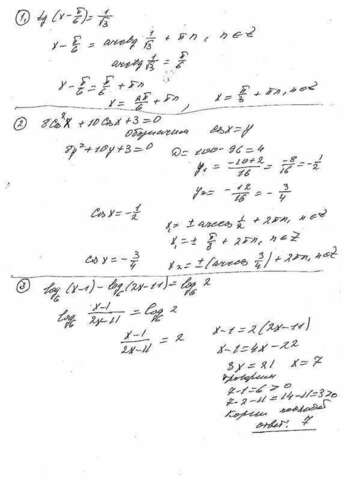 ① tg (x - π/6) = 1/√3
x - π/6 = arctg 1/√3 + πn, n∈Z
arctg 1/√3 = π/6
x - π/6 = π/6 + πn
x = 2π/6 + πn, x = π/3 + πn, n∈Z
② 8Cos²x + 10Cosx + 3 = 0
Обозначим cosx = y
8y² + 10y + 3 = 0 D = 100 - 96 = 4
y₁ = (-10+2)/16 = -8/16 = -1/2
y₂ = -12/16 = -3/4
Cosx = -1/2 x₁ = ± arccos 1/2 + 2πn, n∈Z
x₁ = ± π/3 + 2πn, n∈Z
Cosx = -3/4 x₂ = ±(arccos 3/4) + 2πn, n∈Z
③ log₆(x-1) - log₆(2x-11) = log₆2
log₆ (x-1)/(2x-11) = log₆2
(x-1)/(2x-11) = 2 x-1 = 2(2x-11)
x-1 = 4x-22
3x = 21 x = 7
проверим
7-1 = 6 > 0
7·2-11 = 14-11 = 3>0
Корни
ответ. 7